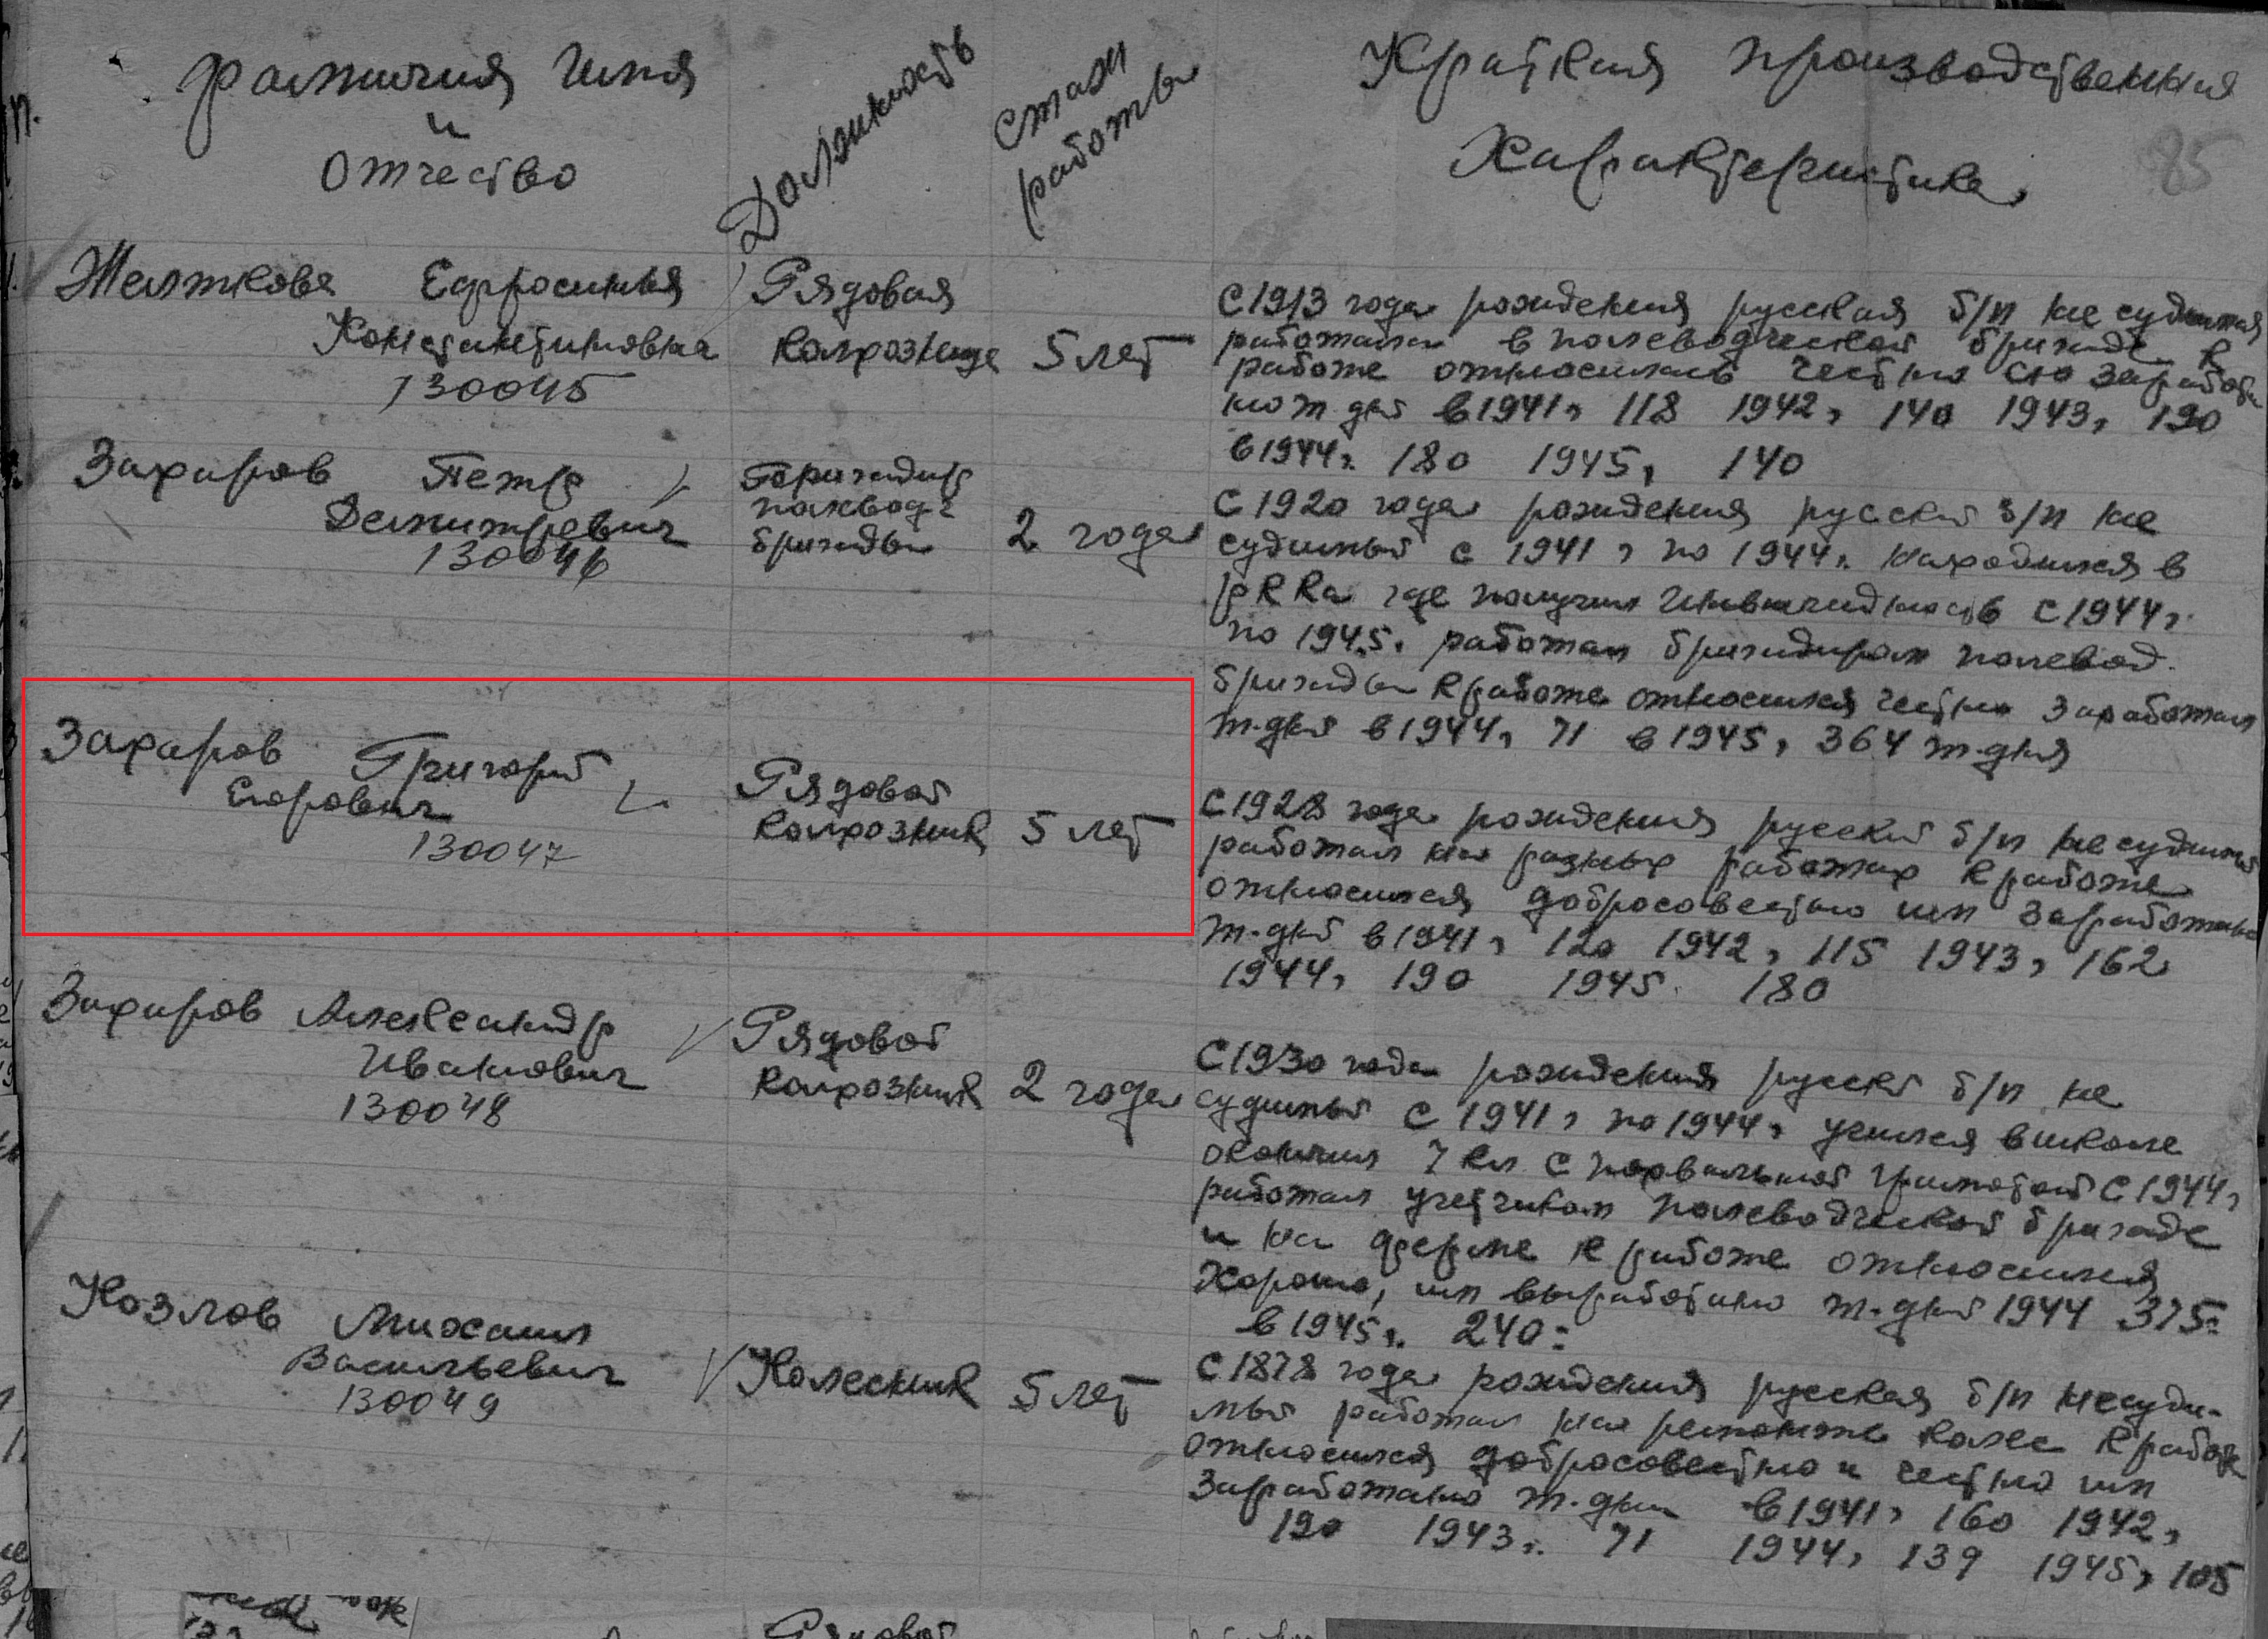 фамилия Имя
и
Отчество
Должность
стаж
работы
Краткая производственная
Характеристика
85
Желткова Ефросинья
Константиновна
130045
Рядовая
колхозница
5 лет
С 1913 года рождения русская б/п не судимая
работала в полеводческой бригаде к
работе относилась честно ею заработа
но т. дней в 1941 г 118 1942 г 140 1943 г 190
в 1944 г. 180 1945 г 140
Захаров Петр
Дмитревич
130046
Бригадир
полевод.
бригады
2 года
С 1920 года рождения русский б/п не
судимый с 1941 г по 1944 г. находился в
РККа где получил инвалидность С 1944 г.
по 1945. работал бригадиром полевод.
бригады к работе относился честно заработал
т. дней в 1944 г 71 в 1945 г 364 т. дня
Захаров Григорий
Егорович
130047
Рядовой
колхозник
5 лет
С 1928 года рождения русский б/п не судимый
работал на разных работах к работе
относился добросовестно им заработано
т. дней в 1941 г 120 1942 г 115 1943 г 162
1944 г 190 1945 180
Захаров Александр
Иванович
130048
Рядовой
колхозник
2 года
С 1930 года рождения русский б/п не
судимый с 1941 г по 1944 г учился в школе
окончил 7 кл с похвальной грамотой С 1944 г
работал учетчиком полеводческой бригаде
и на ферме к работе относился
хорошо, им выработано т. дней 1944 375=
в 1945 г. 240=
Козлов Михаил
Васильевич
130049
Колесник
5 лет
С 1878 года рождения русская б/п несуди-
мый работал на ремонте колес к работе
относился добросовестно и честно им
заработано т. дни в 1941 г 160 1942 г
190 1943 г. 71 1944 г 139 1945 г 105
Рядовой